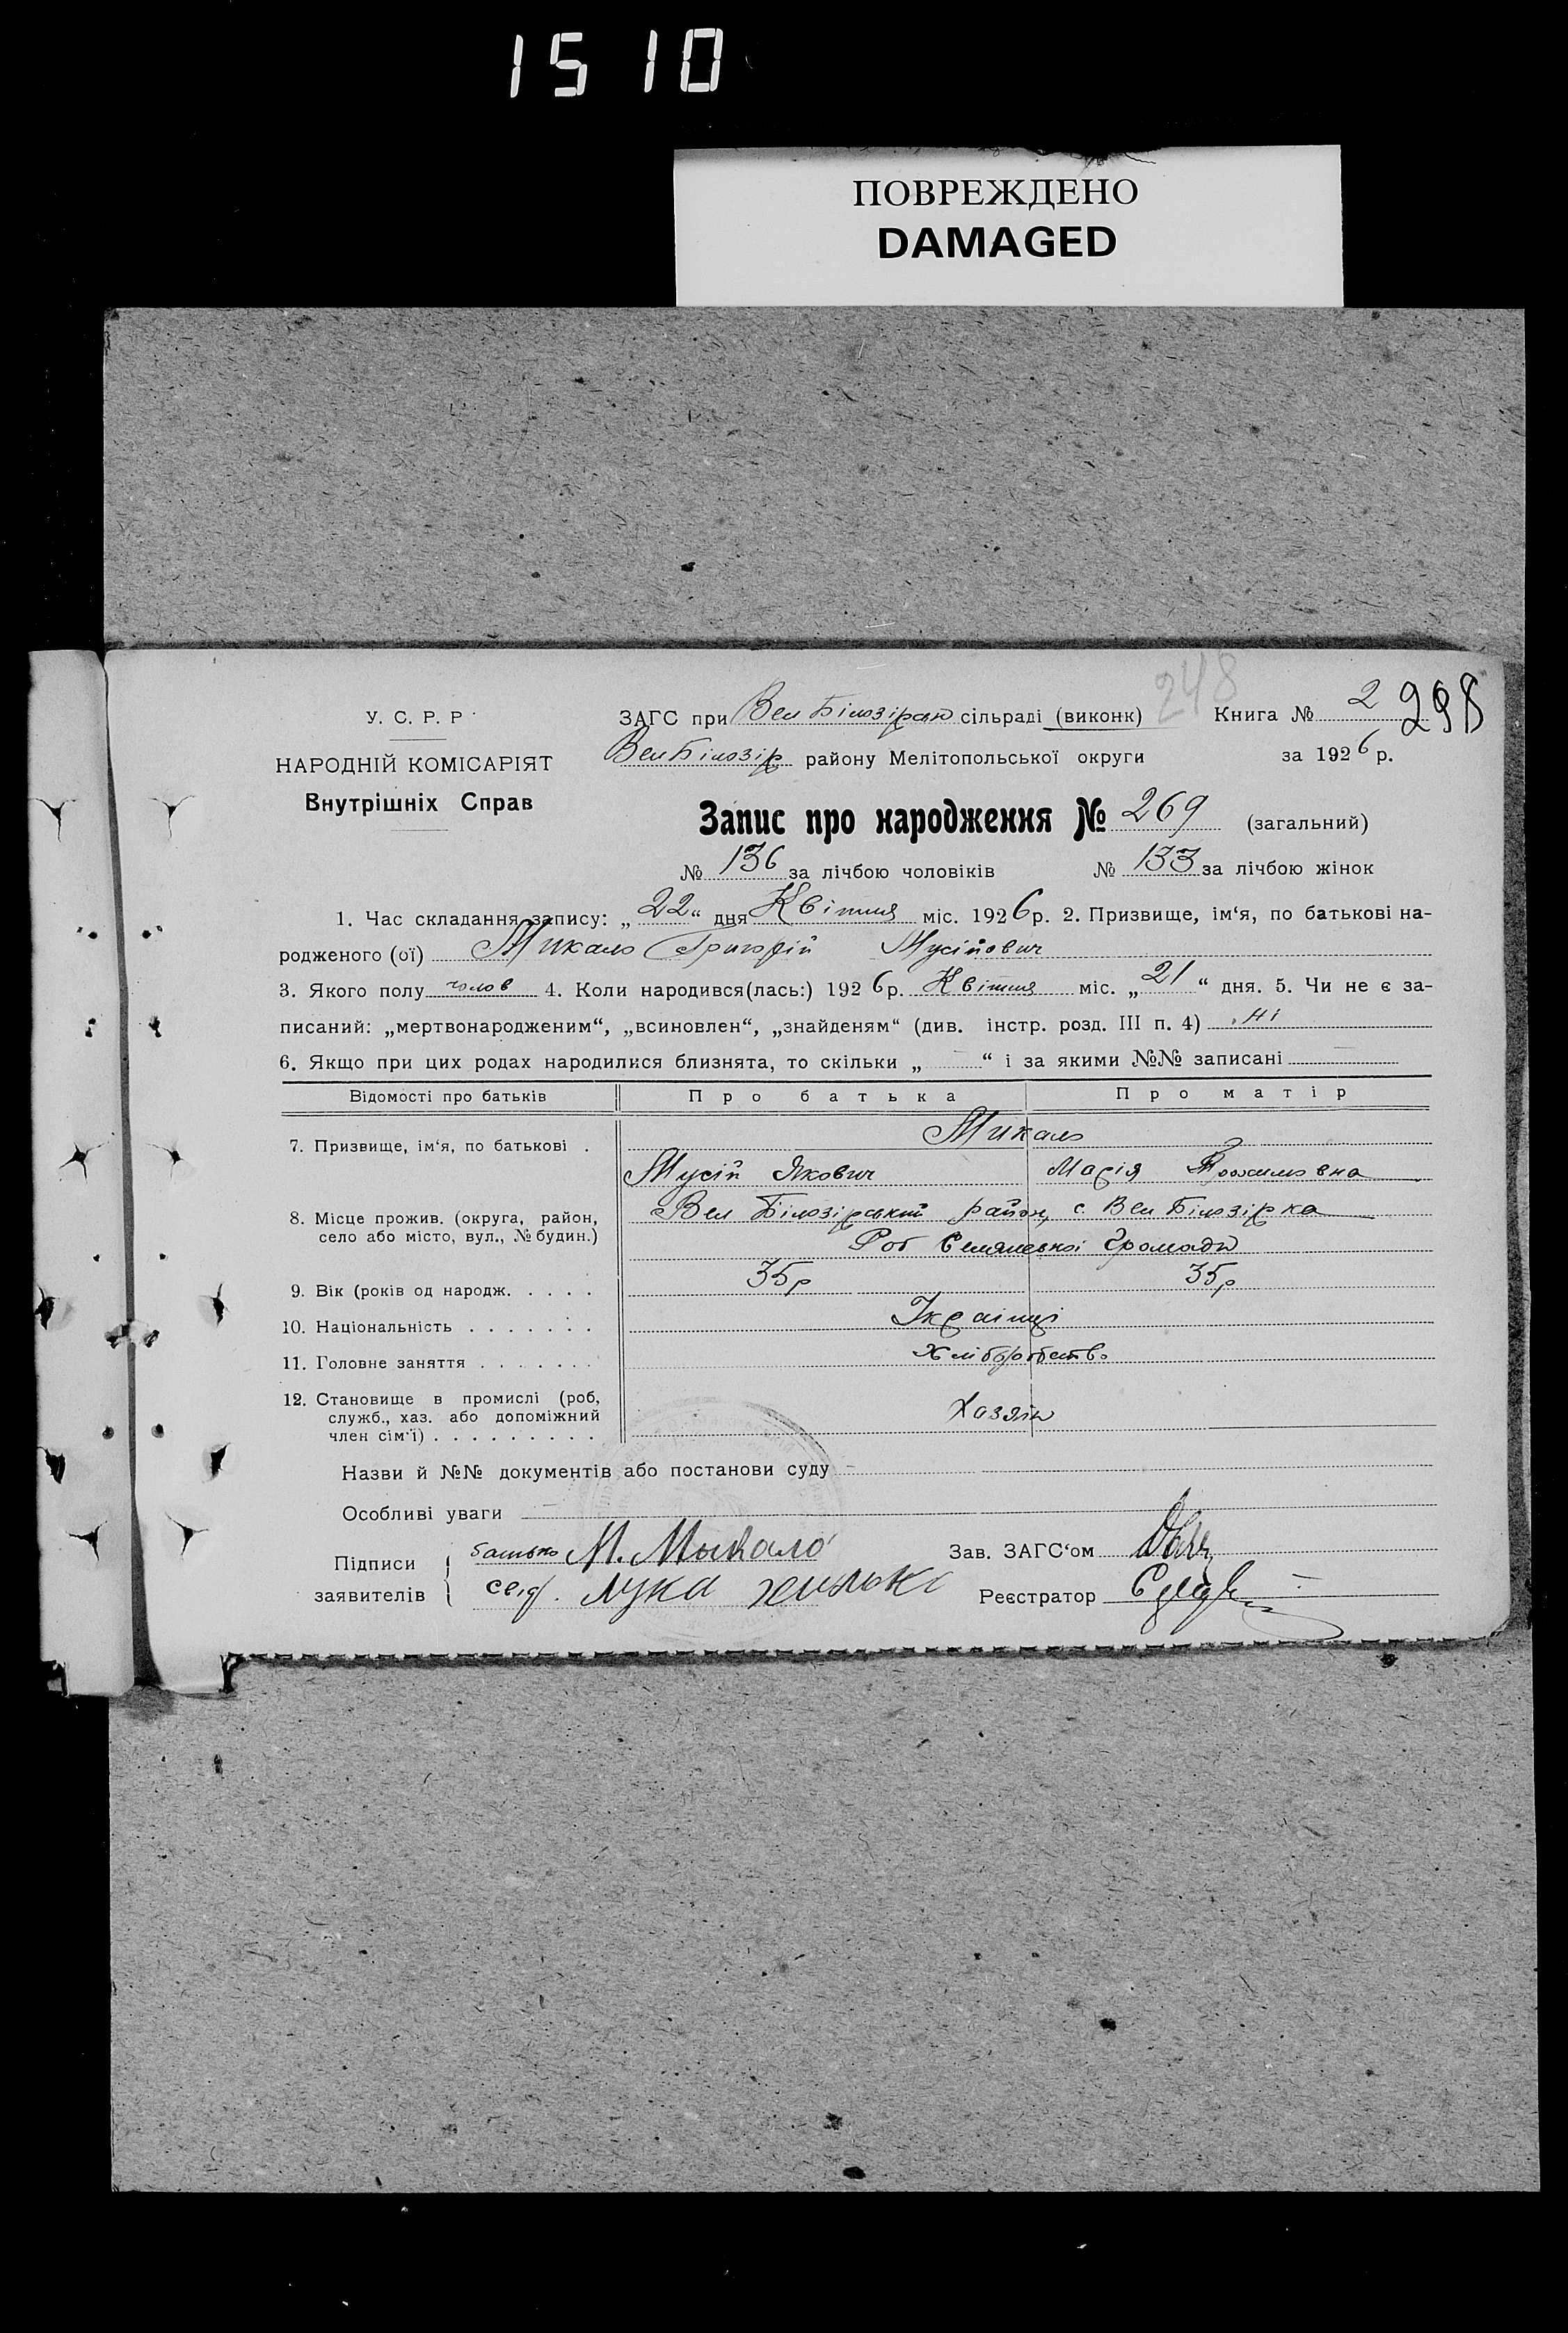 1510
ПОВРЕЖДЕНО
DAMAGED
248
У. С. Р. Р
ЗАГС при Вел Білозірск сільраді (виконк) Книга № 2 298
НАРОДНІЙ КОМІСАРІЯТ
Вел Білозір району Мелітопольської округи за 1926 р.
Внутрішніх Справ
Запис про народження № 269 (загальний)
№ 136 за лічбою чоловіків № 133 за лічбою жінок
1. Час складання запису: „22“ дня Квітня міс. 1926 р. 2. Призвище, ім‘я, по батькові на-
родженого (ої) Микало Григорій Мусійович
3. Якого полу чолов 4. Коли народився(лась:) 1926 р. Квітня міс. „21“ дня. 5. Чи не є за-
писаний: „мертвонародженим“, „всиновлен“, „знайденям“ (див. інстр. розд. III п. 4) Ні
6. Якщо при цих родах народилися близнята, то скільки „ “ і за якими №№ записані
Відомості про батьків Про батька Про матір
7. Призвище, ім‘я, по батькові . Микало
Мусій Якович Марія
8. Місце прожив. (округа, район, село або місто, вул., № будин.) Вел Білозірський район, с. Вел Білозірка
Селянської Громади
9. Вік (років од народж. . . . . 35р 35р
10. Національність . . . . . . . Українці
11. Головне заняття . . . . . . . Хліборобство
12. Становище в промислі (роб,
служб., хаз. або допоміжний
член сім‘ї) . . . . . . . . . Хазяїн
Назви й №№ документів або постанови суду
Особливі уваги
Підписи батько М. Мыкало Зав. ЗАГС‘ом
заявителів свід. Лука Реєстратор